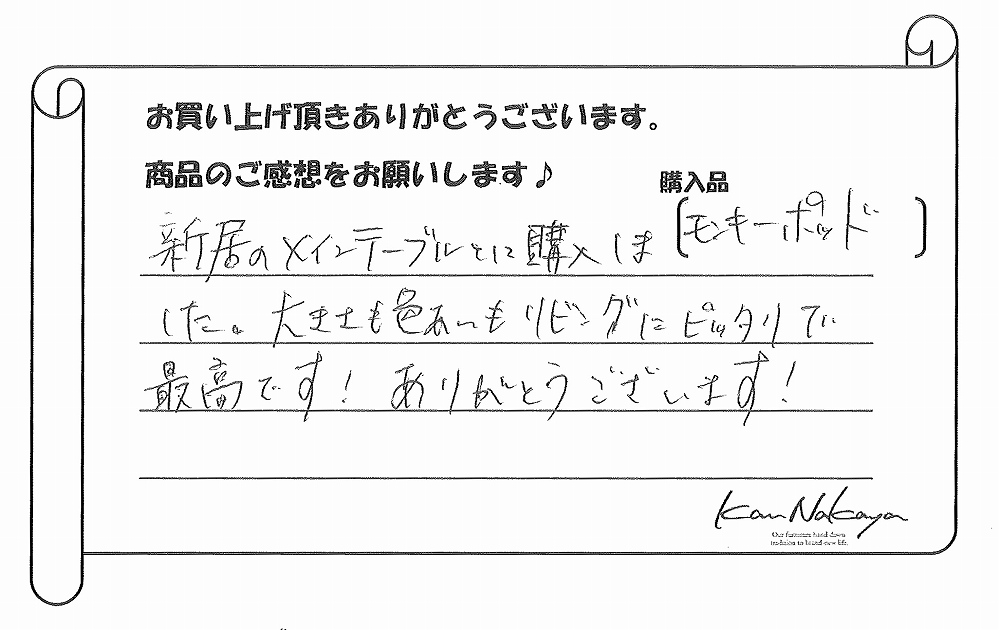 お買い上げ頂きありがとうございます。
商品のご感想をお願いします♪
購入品
[モンキーポッド]
新居のメインテーブルとに購入しま
した。大きさも色あいもリビングにピッタリで
最高です！ ありがとうございます！
Kan Nakaya
Our furniture hand down
tradition to brand-new life.